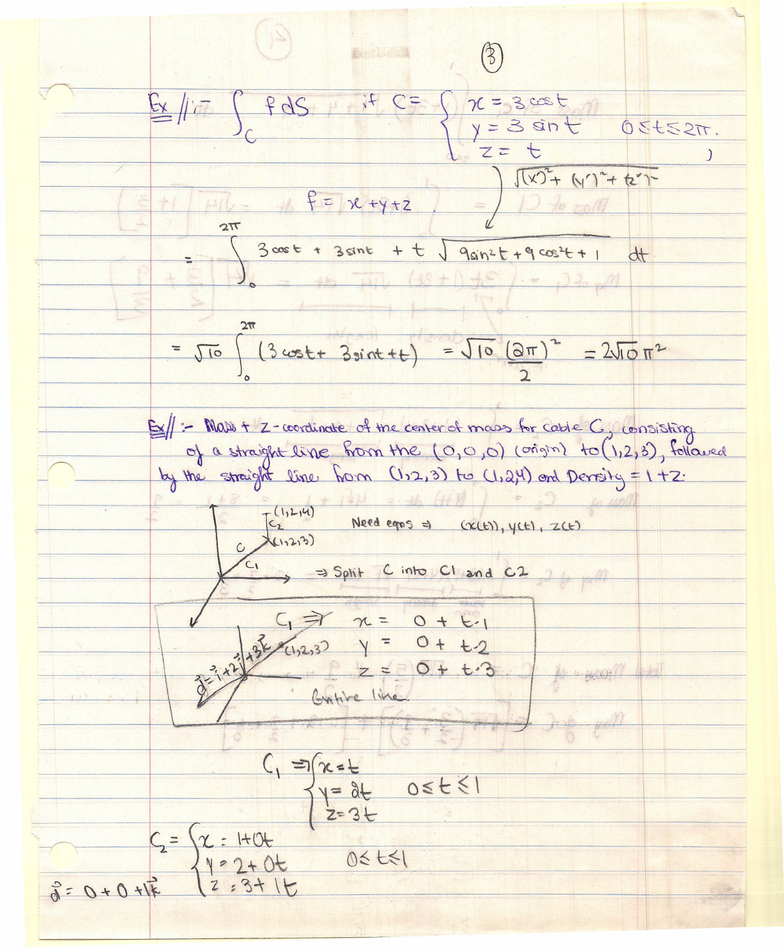 3
Ex// :- ∫_C f dS if C = { x = 3 cost
y = 3 sint 0 ≤ t ≤ 2π.
z = t ,
√(x')² + (y')² + (z')²
f = x+y+z.
= ∫_0^{2π} 3cost + 3sint + t √9sin²t + 9cos²t + 1 dt
= √10 ∫_0^{2π} (3cost + 3sint + t) = √10 (2π)²/2 = 2√10 π²
Ex// :- Mass + z-coordinate of the center of mass for cable C, consisting
of a straight line from the (0,0,0) (origin) to (1,2,3), followed
by the straight line from (1,2,3) to (1,2,4) and Density = 1+z.
(1,2,4)
C2
(1,2,3)
C
C1
Need eqns ⇒ (x(t)), y(t), z(t)
⇒ Split C into C1 and C2
C₁ ⇒ x = 0 + t·1
y = 0 + t·2
z = 0 + t·3
(1,2,3)
d⃗ = i⃗ + 2j⃗ + 3k⃗
Entire line.
C₁ ⇒ { x = t
y = 2t 0 ≤ t ≤ 1
z = 3t
C₂ = { x = 1+0t
y = 2+0t 0 ≤ t ≤ 1
z = 3+1t
d⃗ = 0 + 0 + 1k⃗